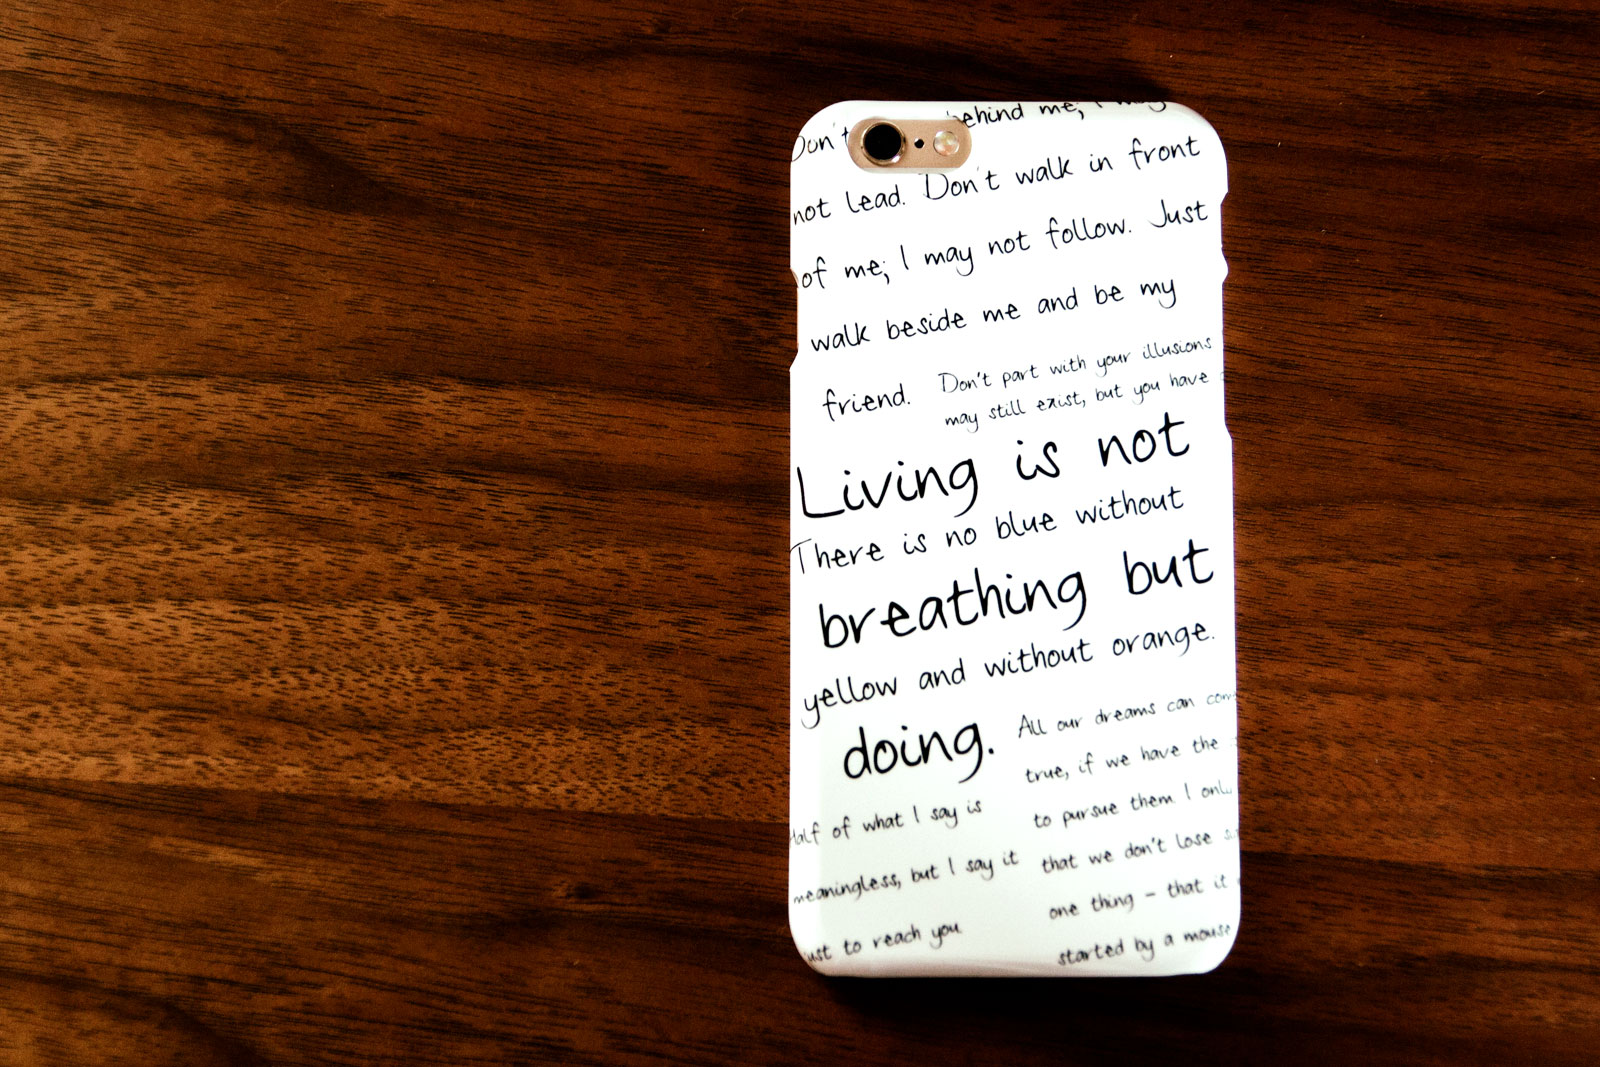 Don't behind me; I may
not lead. Don't walk in front
of me; I may not follow. Just
walk beside me and be my
friend.
Don't part with your illusions
may still exist, but you have
Living is not
There is no blue without
breathing but
yellow and without orange.
doing.
All our dreams can com
true, if we have the
to pursue them I onl
that we don't lose
one thing – that it
started by a mouse
Half of what I say is
meaningless, but I say it
just to reach you